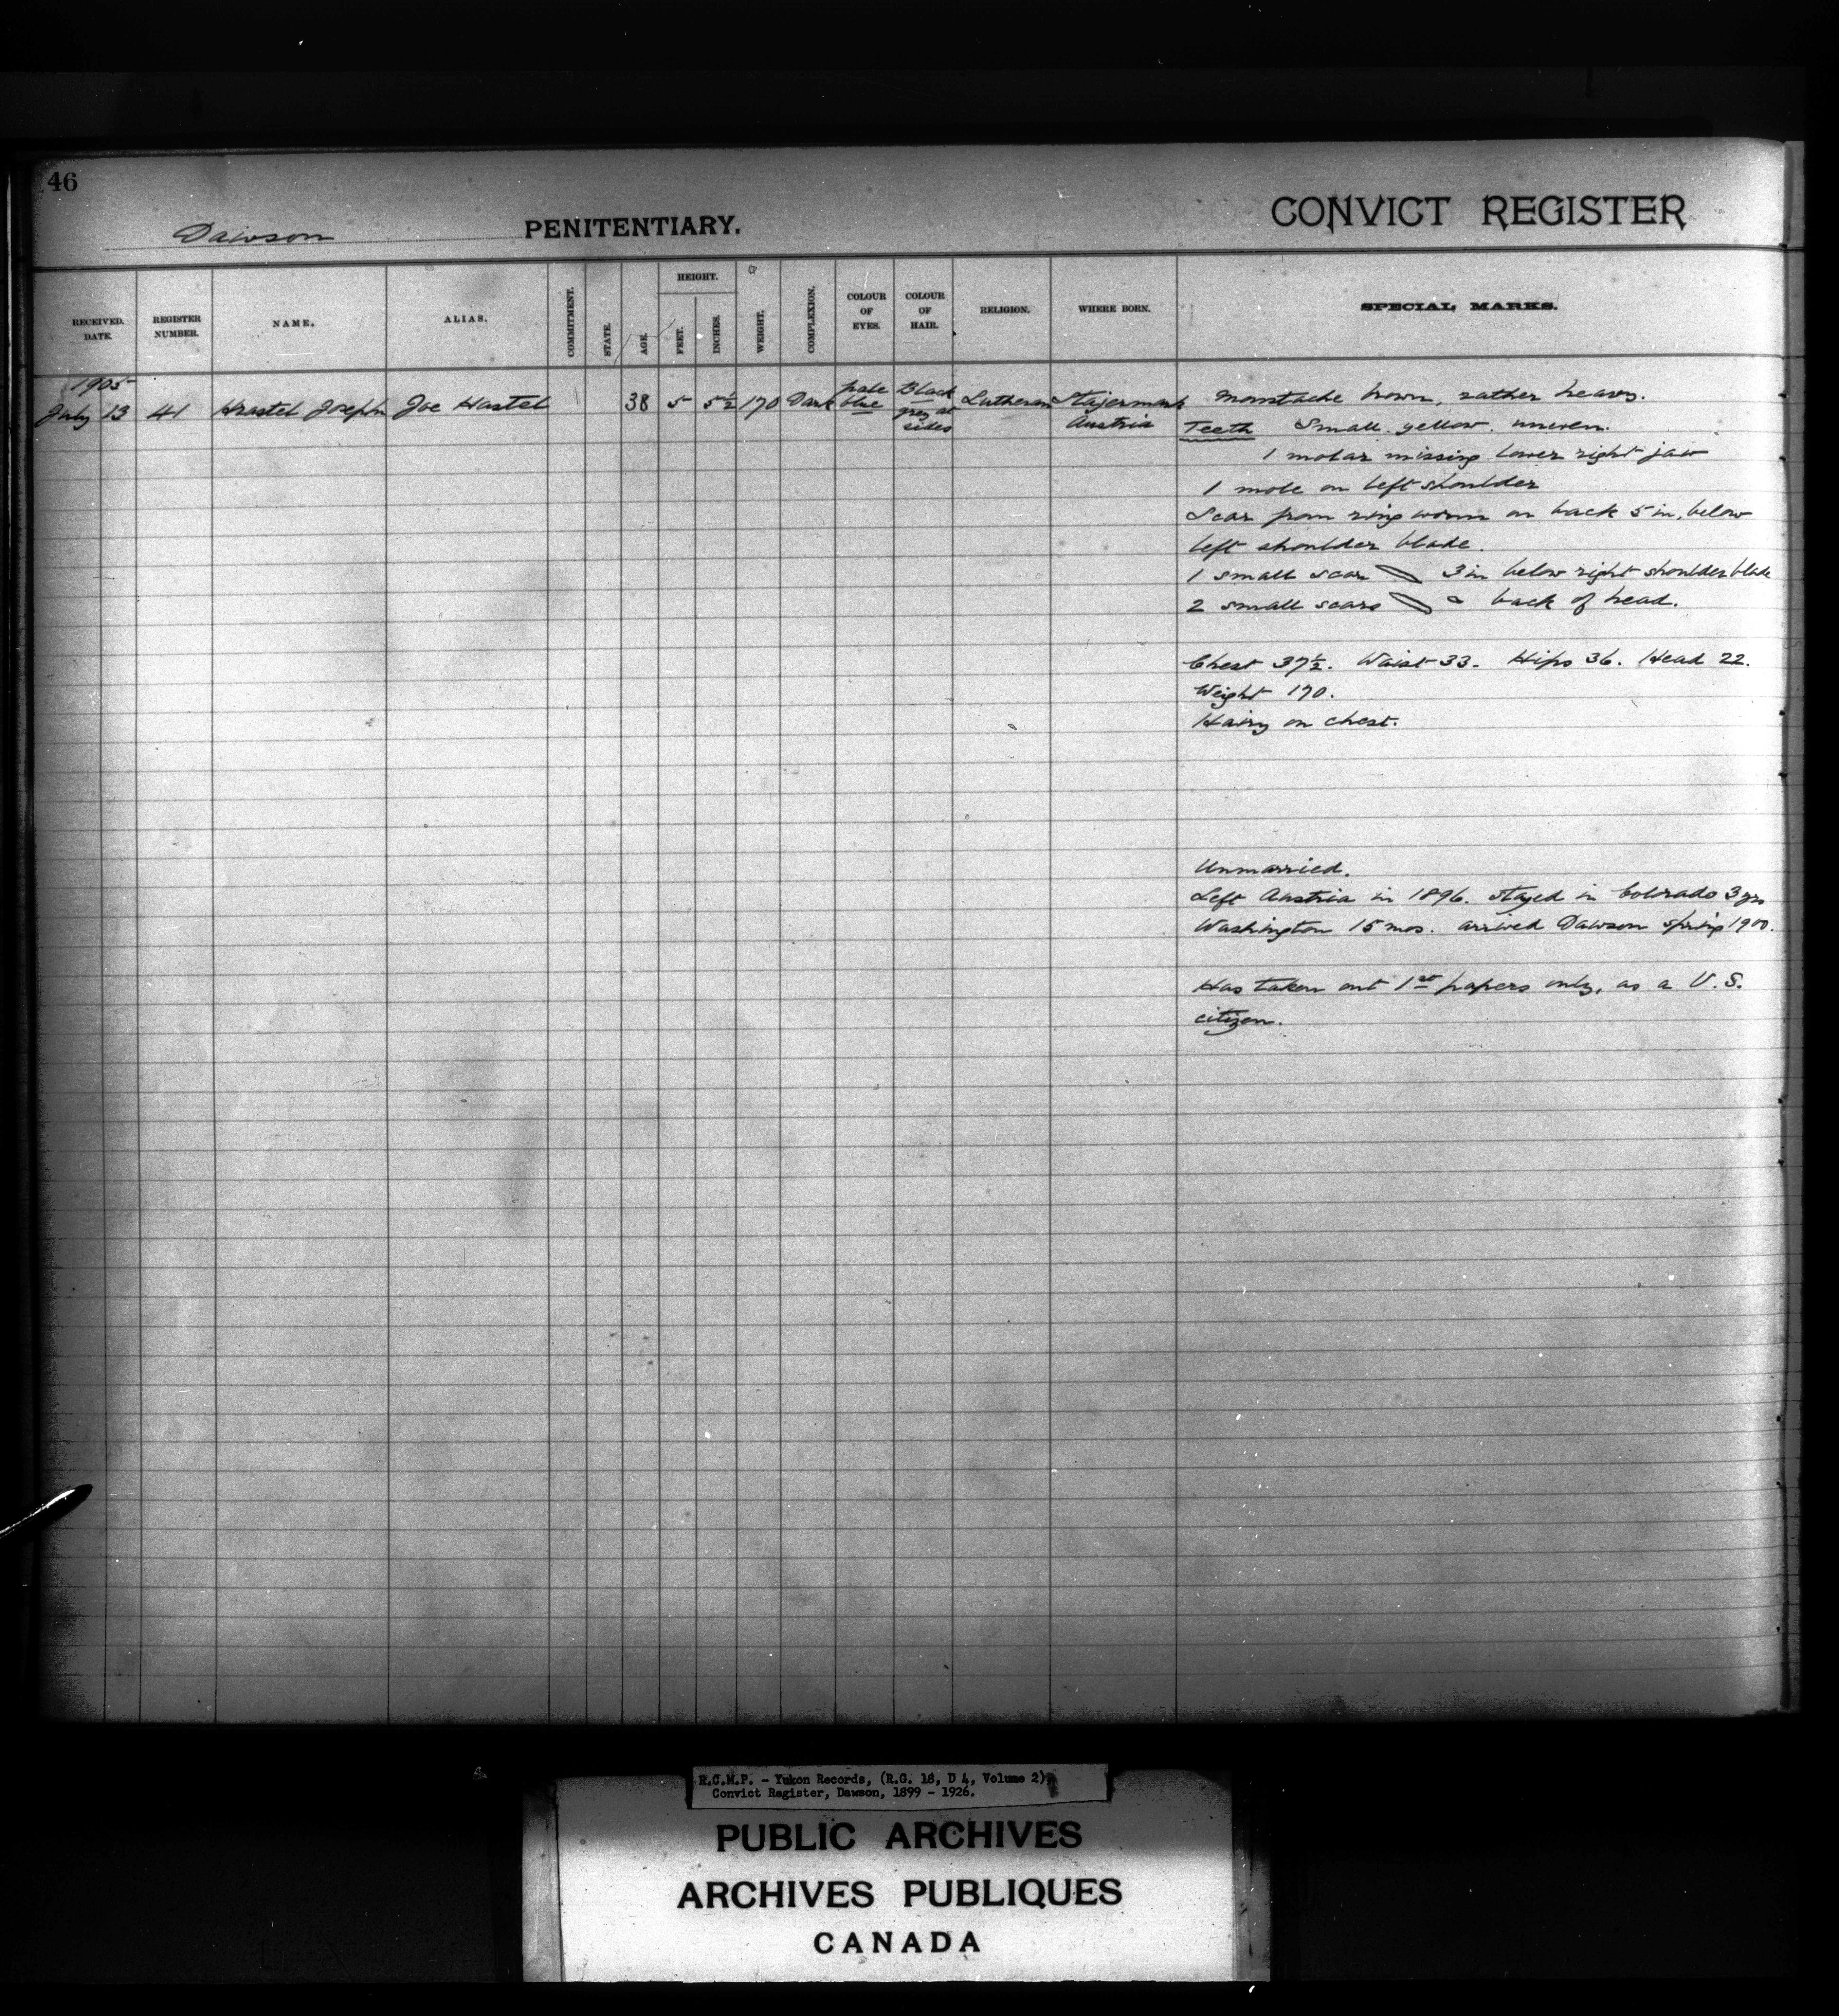 46
Dawson PENITENTIARY.
CONVICT REGISTER
RECEIVED. DATE.
REGISTER NUMBER.
NAME.
ALIAS.
COMMITMENT.
STATE.
AGE.
HEIGHT.
FEET.
INCHES.
WEIGHT.
COMPLEXION.
COLOUR OF EYES.
COLOUR OF HAIR.
RELIGION.
WHERE BORN.
SPECIAL MARKS.
1905
July 13 41 Hrastel Joseph Joe Hastel 38 5 5 1/2 170 Dark pale blue Black grey at sides Lutheran Stajermark Austria
Moustache brown, rather heavy.
Teeth Small. yellow. uneven.
1 molar missing lower right jaw
1 mole on left shoulder
Scar from ring worm on back 5 in. below
left shoulder blade.
1 small scar 3 in below right shoulder blade
2 small scars back of head.
Chest 37 1/2. Waist 33. Hips 36. Head 22.
Weight 170.
Hairy on chest.
Unmarried.
Left Austria in 1896. stayed in Colorado 3 yrs
Washington 15 mos. arrived Dawson spring 1900.
Has taken out 1st papers only, as a U.S.
citizen.
R.C.M.P. - Yukon Records, (R.G. 18, D 4, Volume 2),
Convict Register, Dawson, 1899 - 1926.
PUBLIC ARCHIVES
ARCHIVES PUBLIQUES
CANADA